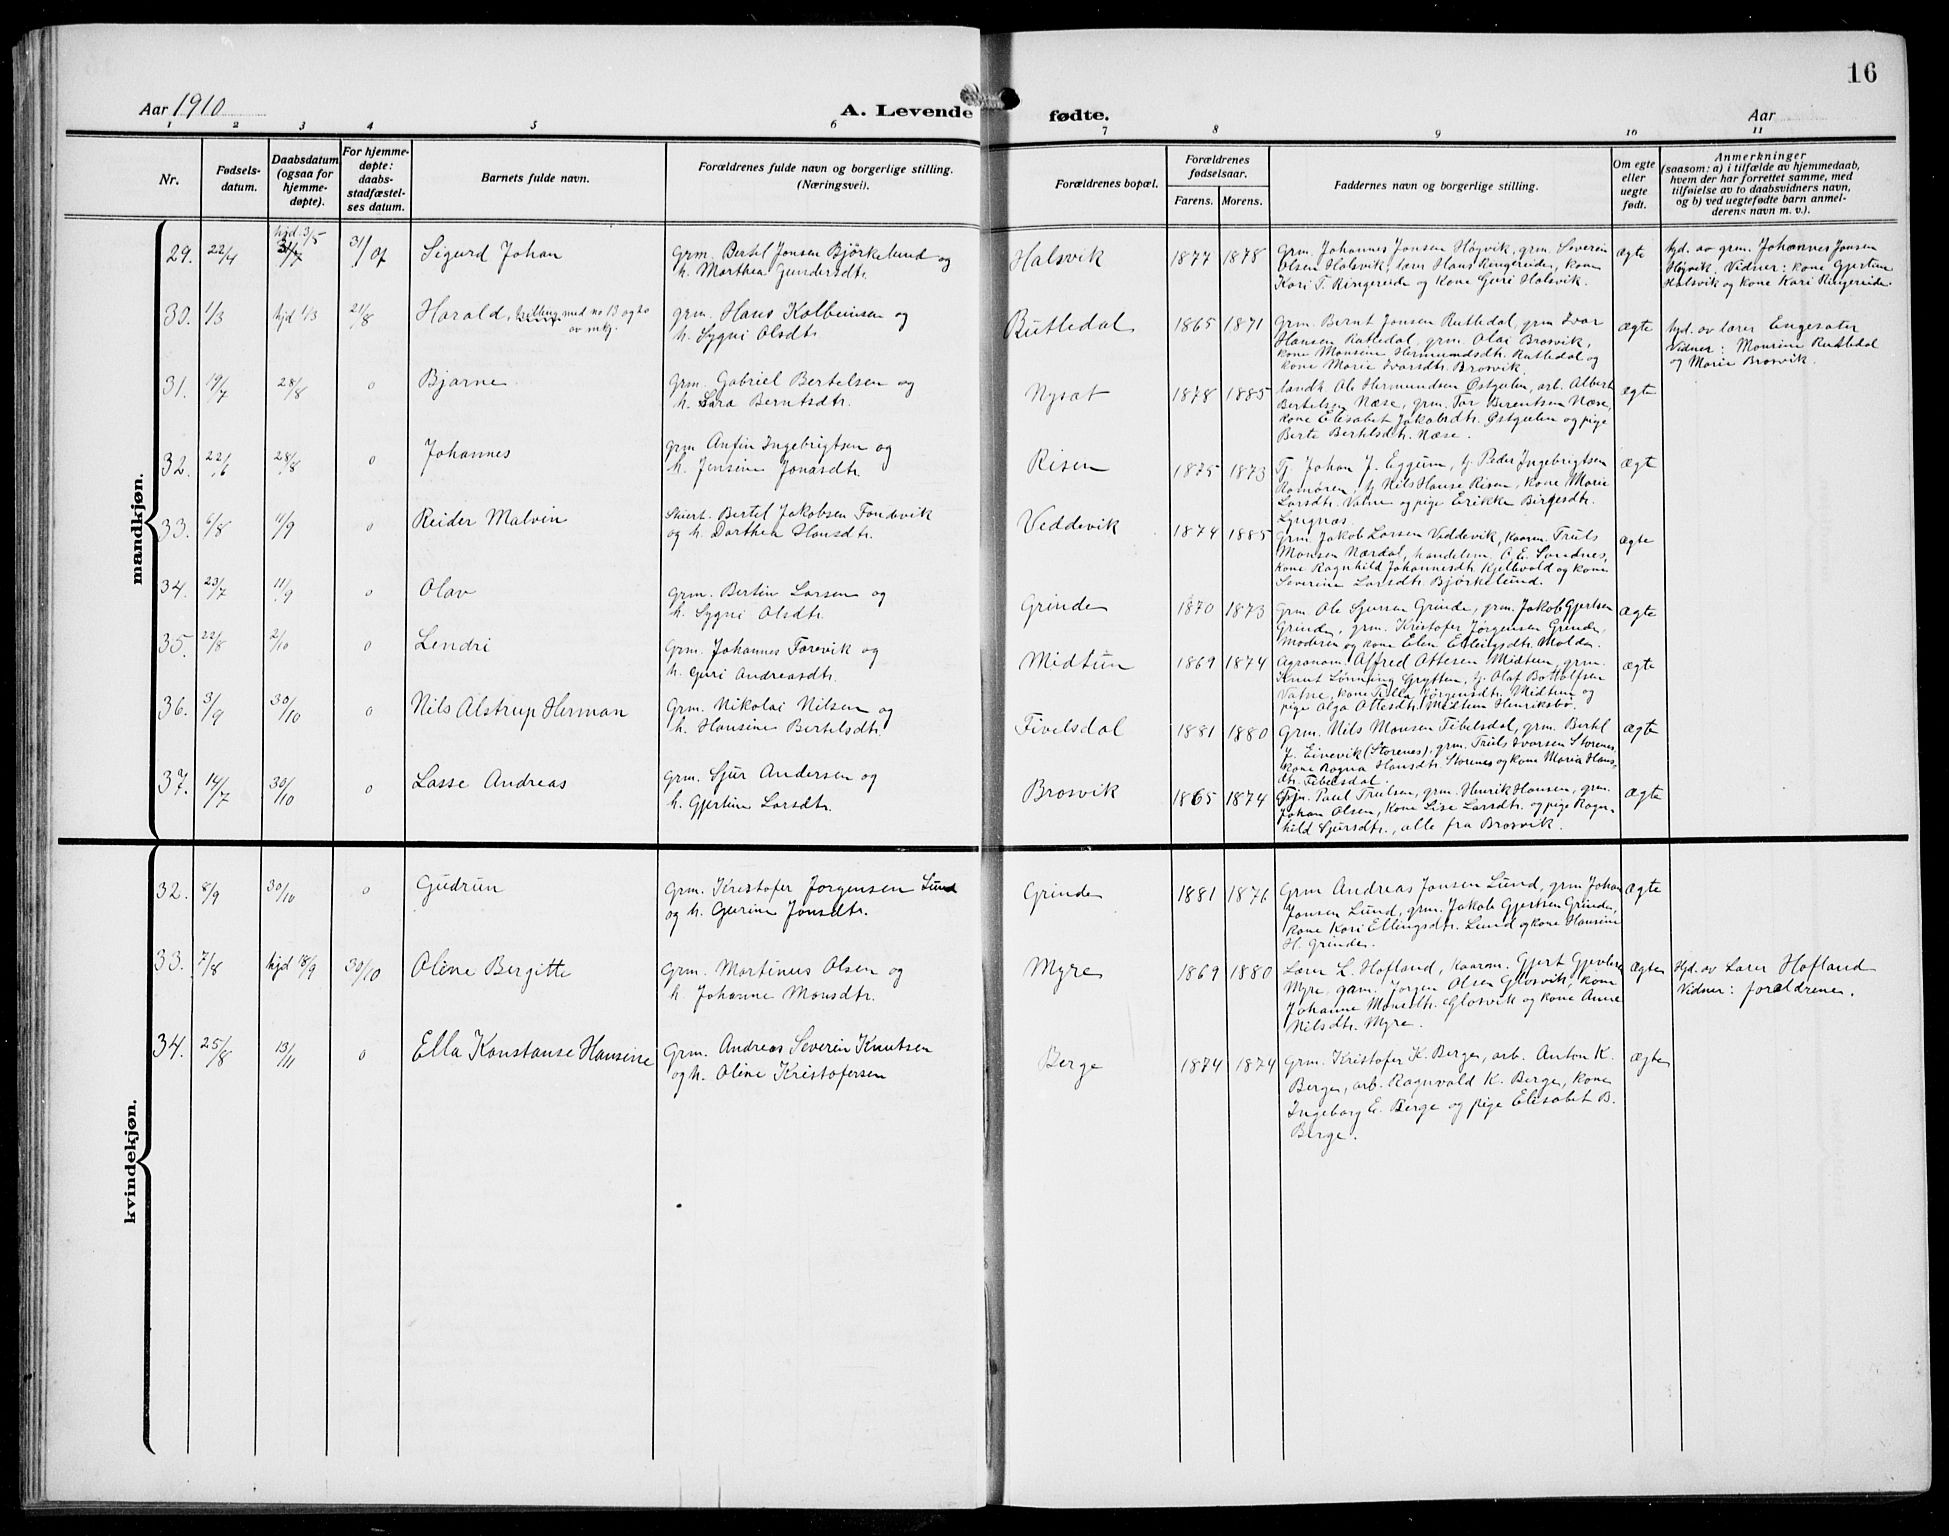 16
Aar 1910 A. Levende fødte. Aar
1 2 3 4 5 6 7 8 9 10 11
Nr. Fødsels-datum. Daabsdatum (ogsaa for hjemme-døpte). For hjemme-døpte: daabs-stadfæstel-ses datum. Barnets fulde navn. Forældrenes fulde navn og borgerlige stilling. (Næringsvei). Forældrenes bopæl. Forældrenes fødselsaar. Farens. Morens. Faddernes navn og borgerlige stilling. Om egte eller uegte født. Anmerkninger (saasom: a) i tilfælde av hjemmedaab, hvem der har forrettet samme, med tilføielse av to daabsvidners navn, og b) ved uegtefødte barn anmel-derens navn m. v.).
mandkjøn.
29. 22/4 hjd. 3/5 31/7 Sigurd Johan
Grm. Bertel Jonsen Bjørkelund og
h. Marthea Gundersdtr.
Halsvik 1877 1878
Grm. Johannes Jonsen Høgvik, grm. Severin
Olsen Halsvik, lærer Hans Ringereide, kone
Kari T. Ringereide og kone Guri Halsvik.
ægte
hjd. av grm. Johannes Jonsen
Høgvik. Vidner: kone Gjertine
Halsvik og kone Kari Ringereide
30. 1/3 hjd 1/3 21/8 Harald, tvilling med no 13 og 20
av mkj.
grm. Hans Kolbeinsen og
h. Sygni Olsdtr.
Rutledal 1865 1871
Grm. Bernt Jonsen Rutledal, grm Ivar
Hansen Rutledal, grm. Olai Brosvik,
kone Monsine Hermundsdtr. Rutledal og
kone Marie Ivarsdtr. Brosvik.
ægte
hjd. av lærer Engesæter
Vidner: Monsine Rutledal
og Marie Brosvik.
31. 19/7 28/8 0 Bjarne
Grm. Gabriel Bertelsen og
h. Sara Berntsdtr.
Nysæt 1878 1885
landh. Ole Hermundsen Østgulen, arb. Albert
Bertelsen Næse, grm. Tor Berentsen Næse,
kone Elisabet Jakobsdtr. Østgulen og pige
Berte Bertelsdtr. Næse.
ægte
32. 22/6 28/8 0 Johannes
Grm Anfin Ingebrigtsen og
h. Jensine Jonasdtr.
Risen 1875 1873
Tj. Johan J. Eggum, tj. Peder Ingebrigtsen
Ramøren, tj. Nils Hanse Risen, kone Marie
Larsdtr. Vatne og pige Erikke Birgesdtr.
Lyngnæs.
ægt
33. 6/8 11/9 0 Reider Malvin
Skiert. Bertel Jakobsen Fondevik
og h. Dorthea Hansdtr.
Veddevik 1874 1885
Grm. Jakob Larsen Veddevik, kaarm. Truls
Monsen Nærdal, handelsm. O. E. Sandnes,
kone Ragnhild Johannesdtr. Kjellevold og kone
Severine Larsdtr. Bjørkelund.
ægte
34. 23/7 11/9 0 Olav
Grm. Bertin Larsen og
h. Sygni Olsdtr.
Grinde 1870 1873
Grm. Ole Sjursen Grinde, grm. Jakob Gjertsen
Grinde, grm. Kristofer Jørgensen Grinde,
Moderen og kone Elen Ellingsdtr. Molde.
ægte
35. 22/8 2/10 0 Lendri
Grm. Johannes Torevik og
h. Guri Andreasdtr.
Midtun 1869 1874
Agronom. Alfred Ottesen Midtun, grm.
Knut Lønning Grytten, tj. Olaf Bottolfsen
Vatne, kone Tilla Jørgensdtr. Midtun og
pige Olga Ottesdtr. Midtun Henriksbø.
ægte
36. 3/9 30/10 0 Nils Alstrup Herman
Grm. Nikolai Nilsen og
h. Hansine Bertelsdtr.
Fivelsdal 1881 1880
Grm. Nils Monsen Fibelsdal, grm. Bertel
J. Eivevik (Storenes), grm. Truls Ivarsen Storenes,
kone Ragna Hansdtr. Storenes og kone Maria Hans-
dtr. Fibelsdal.
ægte
37. 14/7 30/10 0 Lasse Andreas
Grm. Sjur Andersen og
h. Gjertine Larsdtr.
Brosvik 1865 1874
Grm. Paul Trulsen, grm. Henrik Hansen, grm.
Johan Olsen, kone Lise Larsdtr. og pige Ragn-
hild Sjursdtr., alle fra Brosvik.
ægte
kvindekjøn.
32. 8/9 30/10 0 Gudrun
Grm. Kristofer Jørgensen Lund
og h. Gurine Jonsdtr.
Grinde 1881 1876
Grm Andreas Jonsen Lund, grm Johan
Jonsen Lund, grm. Jakob Gjertsen Grinde,
kone Kari Ellingsdtr. Lund og kone Hansine
H. Grinde.
ægte
33. 7/8 hjd 18/9 30/10 Oline Bergitte
Grm. Martinus Olsen og
h. Johanne Monsdtr.
Myre 1869 1880
Lærer L. Hofland, kaarm. Gjert
Myre, grm. Jørgen Olsen Glosvik, kone
Johanne Monsdtr. Glosvik og kone Anne
Nilsdtr. Myre.
ægte
Hjd. av Lærer Hofland
Vidner: forældrene.
34. 25/8 13/11 0 Ella Konstanse Hansine
Grm. Andreas Severin Knutsen
og h. Oline Kristofersen
Berge 1874 1874
Grm. Kristofer K. Berge, arb. Anton K.
Berge, arb. Ragnvald K. Berge, kone
Ingeborg E. Berge og pige Elisabet B.
Berge.
ægte